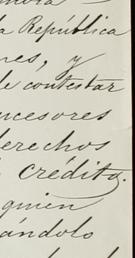 la República
nes, y
de contestar
ucesores
derechos
crédito.
quien
ándolo